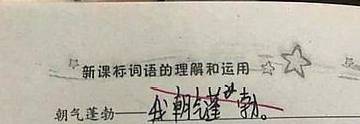 新课标词语的理解和运用
朝气蓬勃——我朝气蓬勃。